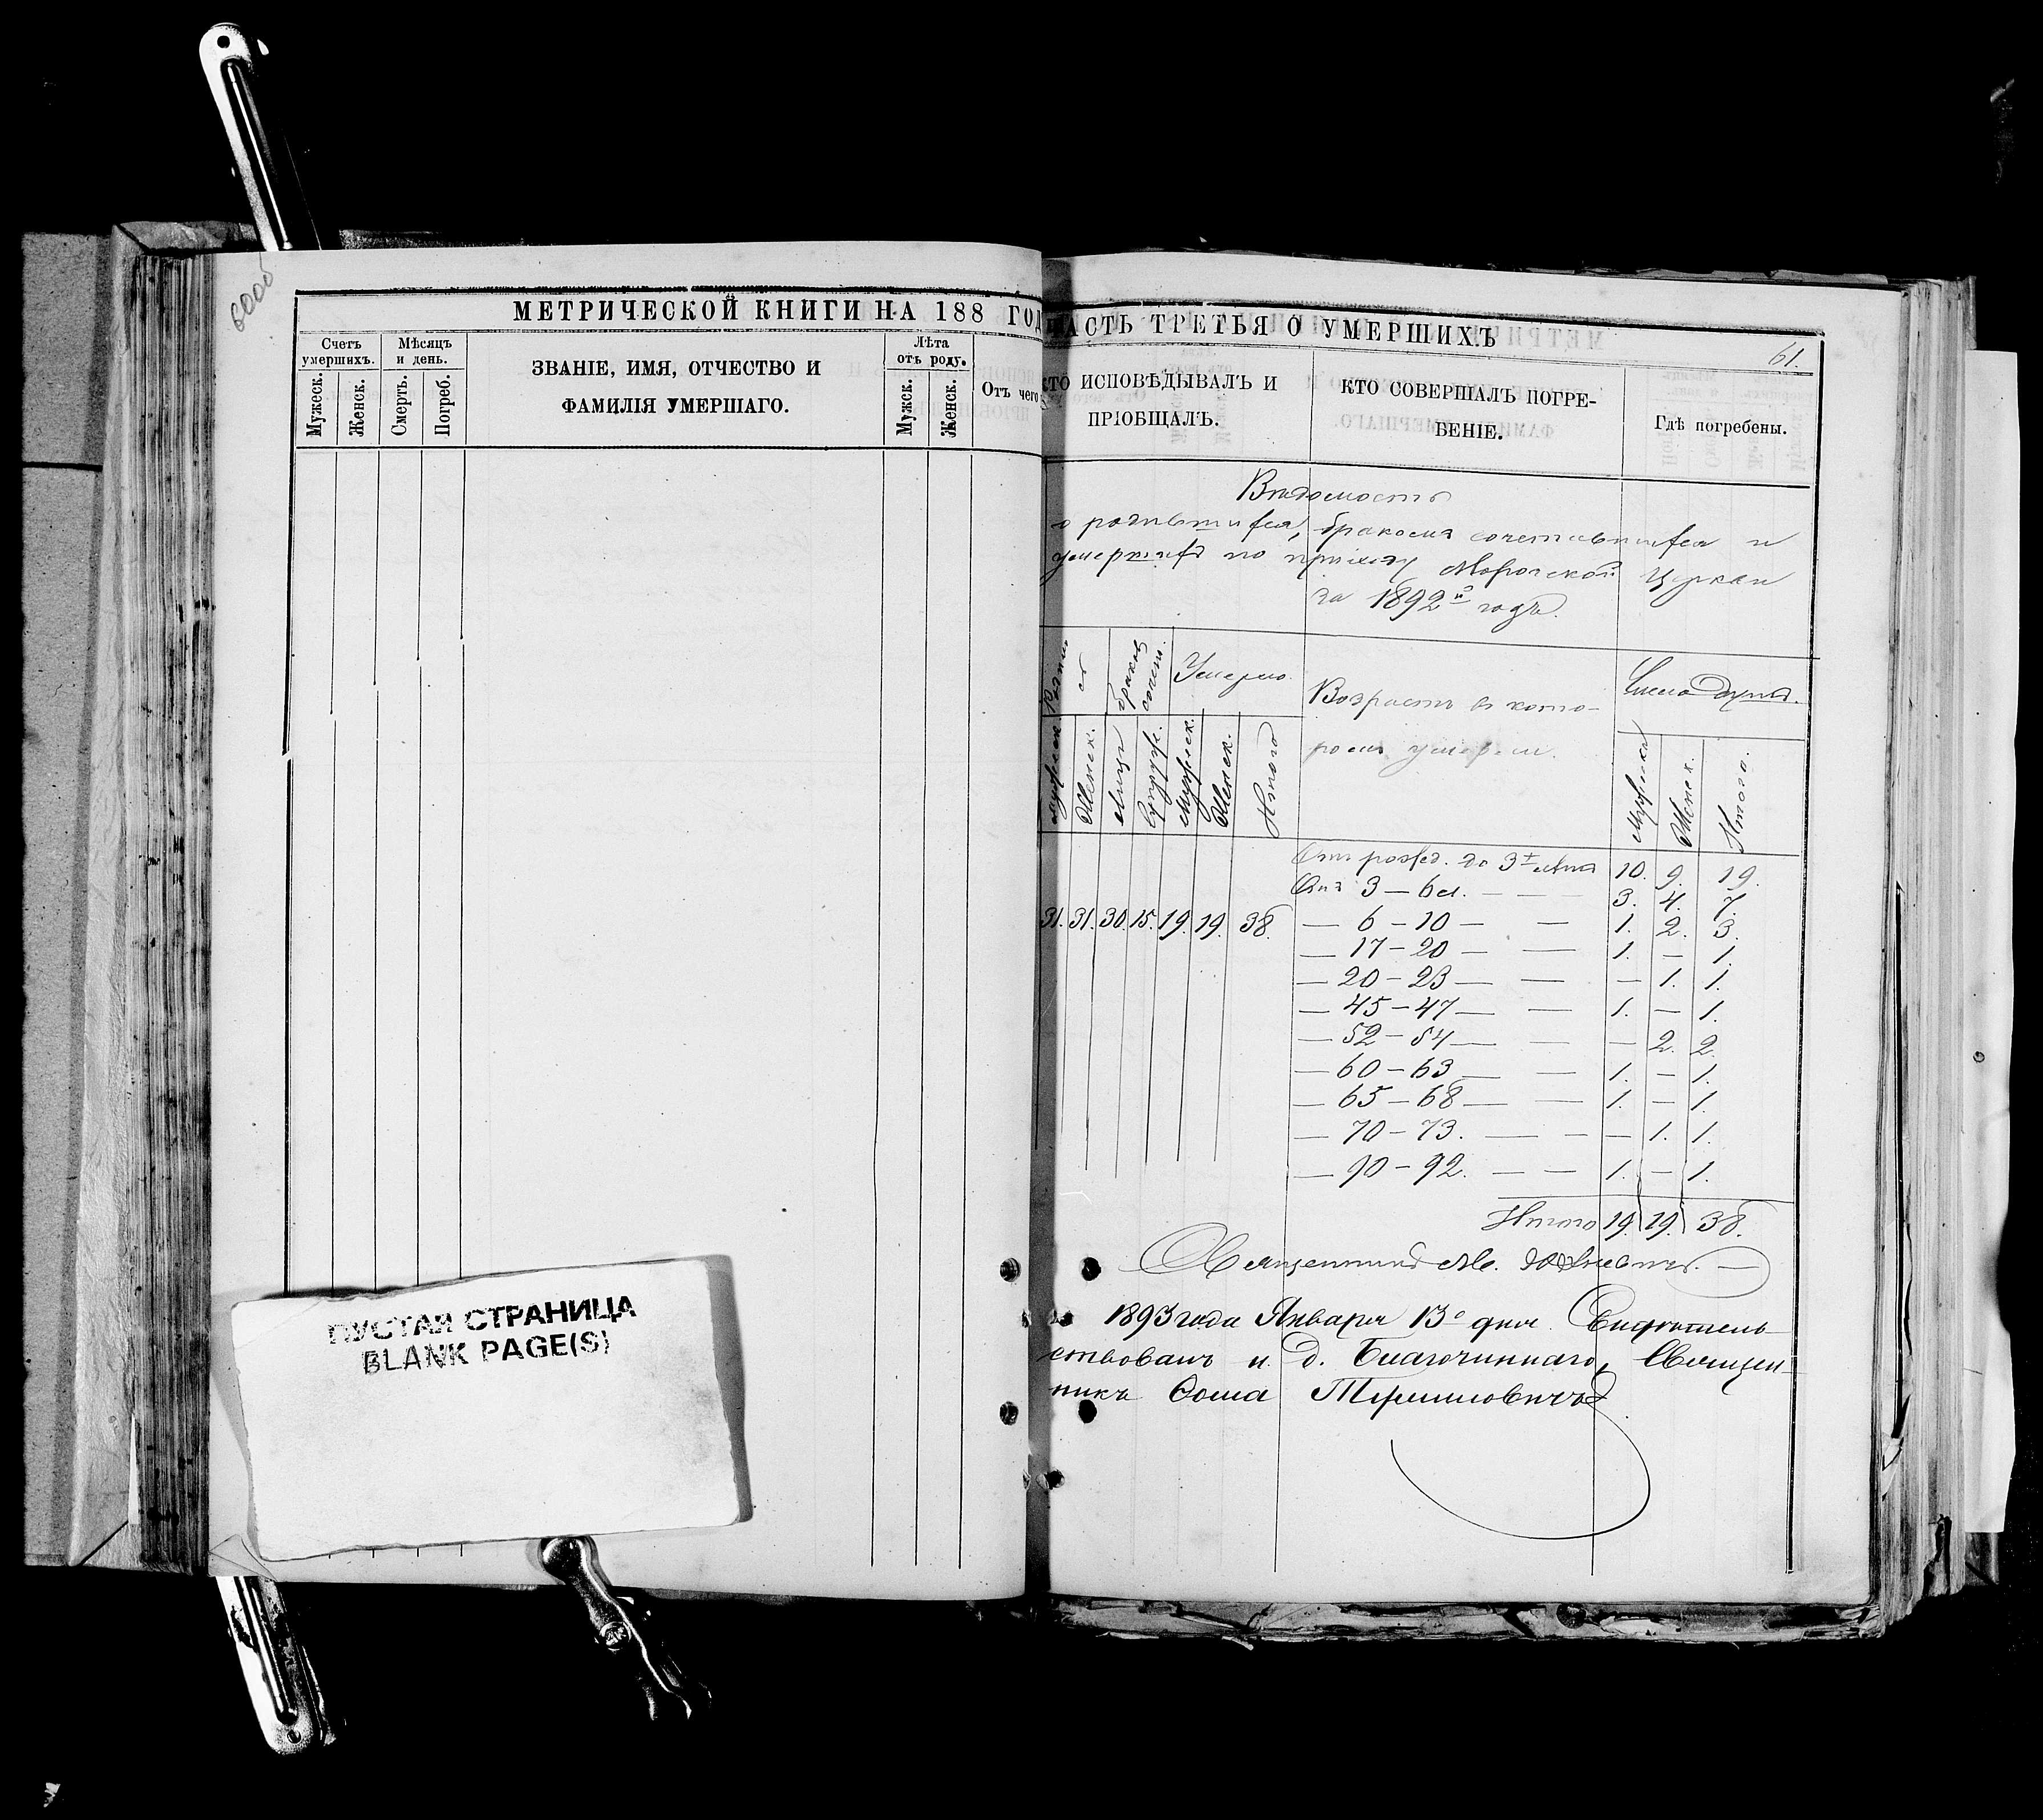 МЕТРИЧЕСКОЙ КНИГИ НА 188 ГОД
Счетъ умершихъ.
Мѣсяцъ и день.
ЗВАНІЕ, ИМЯ, ОТЧЕСТВО И
ФАМИЛІЯ УМЕРШАГО.
Лѣта отъ роду.
Отъ чего
Мужеск. Женск. Смерть. Погреб. Мужск. Женск.
ПУСТАЯ СТРАНИЦА
BLANK PAGE(S)
ЧАСТЬ ТРЕТЬЯ О УМЕРШИХЪ
61.
КТО ИСПОВѢДЫВАЛЪ И
ПРІОБЩАЛЪ.
КТО СОВЕРШАЛЪ ПОГРЕ-
БЕНІЕ.
Гдѣ погребены.
Вѣдомость
о родившихся, бракомъ сочетавшихся и
умершихъ по приходу Морочской Церкви
за 1892й годъ.
Умерло.
Возрастъ въ кото-
ромъ умерли.
Число душъ.
Мужеск. Женск. Лица Супруж. Мужеск. Женск. Итого
Мужеска Женск. Итого.
Отъ рожд. до 3х лѣтъ 10. 9. 19.
Отъ 3 — 6 л. — — 3. 4. 7.
31. 31. 30. 15. 19. 19. 38.
— 6 — 10 — — 1. 2. 3.
— 17 — 20 — — 1. — 1.
— 20 — 23 — — — 1. 1.
— 45 — 47 — — 1. — 1.
— 52 — 54 — — — 2. 2.
— 60 — 63 — — 1. — 1.
— 65 — 68 — — 1. — 1.
— 70 — 73. — — — 1. 1.
— 90 — 92. — — 1. — 1.
Итого 19. 19. 38.
Священникъ
1893 года Января 13 дня. Свидѣтель-
ствовалъ и. д. Благочиннаго, Священ-
никъ Ѳома